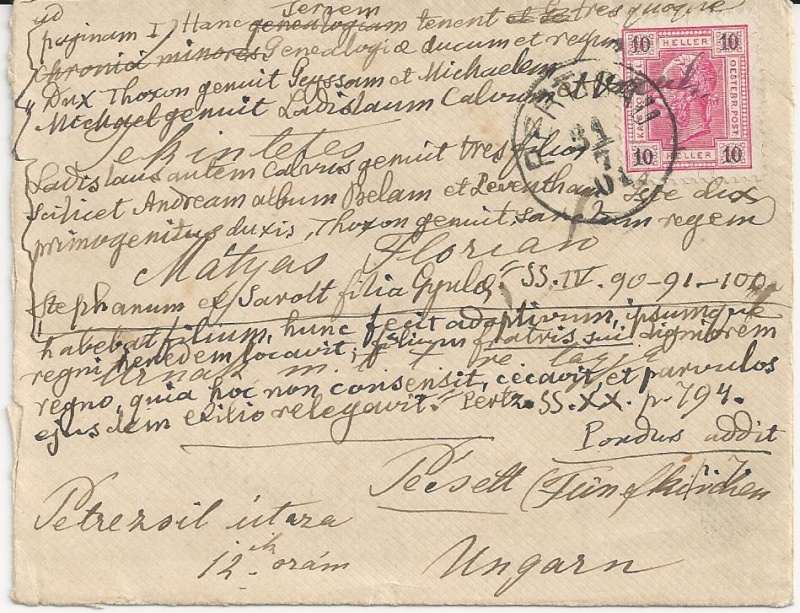 ad
paginam I) Hanc seriem genealogiam tenent et tres quoque
chronici minores. Genealogiæ ducum et regum
Dux Thoxon genuit Geyssam et Michaelem
Michael genuit Ladislaum Calvum et
Tekintetes
Ladislaus autem Calvus genuit tres filios
scilicet Andream album Belam et Leventham Iste dux
primogenitus duxis, Thoxon genuit Sanctum regem
Mátyás Flórián
Stephanum ex Sarolt filia Gyulæ. SS. IV. 90-91-100
habebat filium, hunc fecit adoptivum, ipsumque
regni heredem locavit; filium fratris sui digniorem
Urnak m. t. re. tagja
regno, quia hoc non consensit, cecavit, et parvulos
ejusdem exilio relegavit. Pertz. SS. XX. p. 794.
Pondus addit
Pécsett (Fünfkirchen
Petrezsil utcza
12ik szám
Ungarn
10 HELLER 10
KAIS. KÖNIGL.
OESTERR. POST
10 HELLER 10
31
7
01